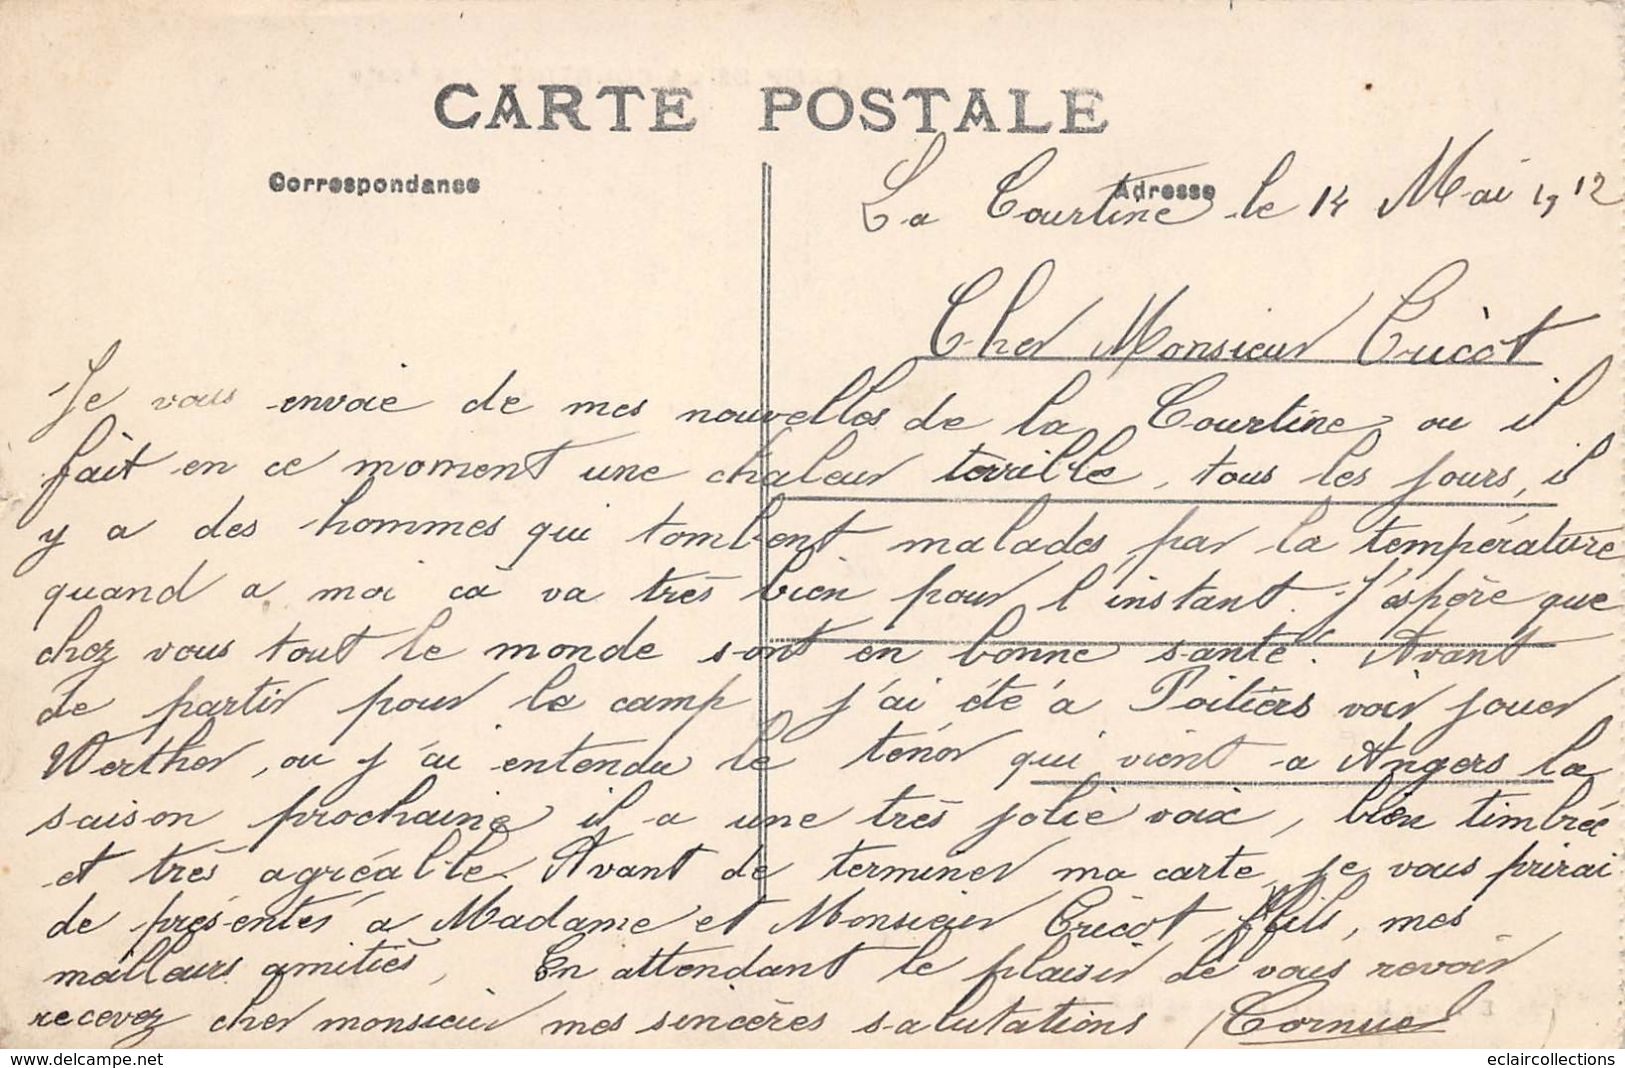 CARTE POSTALE
Correspondance
Adresse
La Courtine le 14 Mai 1912
Cher Monsieur Cricòt
Je vous envoie de mes nouvelles de la Courtine ou il
fàit en ce moment une chaleur terrible, tous les jours, il
y a des hommes qui tombent malades par la température
quand a moi ca va très bien pour l'instant. J'éspère que
chez vous tout le monde sont en bonne santé. Avant
de partir pour le camp j'ai été a Poitiers voir jouer
Werther, ou j'ai entendu le ténor qui vient a Angers la
saison prochaine il a une très jolie voix, bien timbrée
et très agréable. Avant de terminer ma carte, je vous prirai
de présentés a Madame et Monsieur Cricot fils, mes
mailleurs amitiés, En attendant le plaisir de vous revoir
recevez cher monsieur mes sincères salutations Cornue
eclaircollections